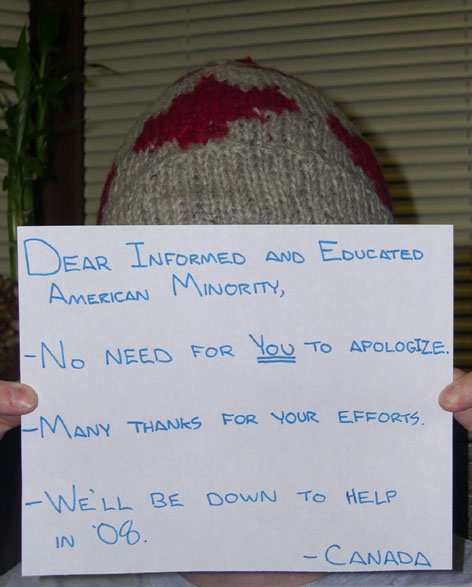 DEAR INFORMED AND EDUCATED
AMERICAN MINORITY,
-NO NEED FOR YOU TO APOLOGIZE.
-MANY THANKS FOR YOUR EFFORTS.
-WE'LL BE DOWN TO HELP
IN '08.
-CANADA